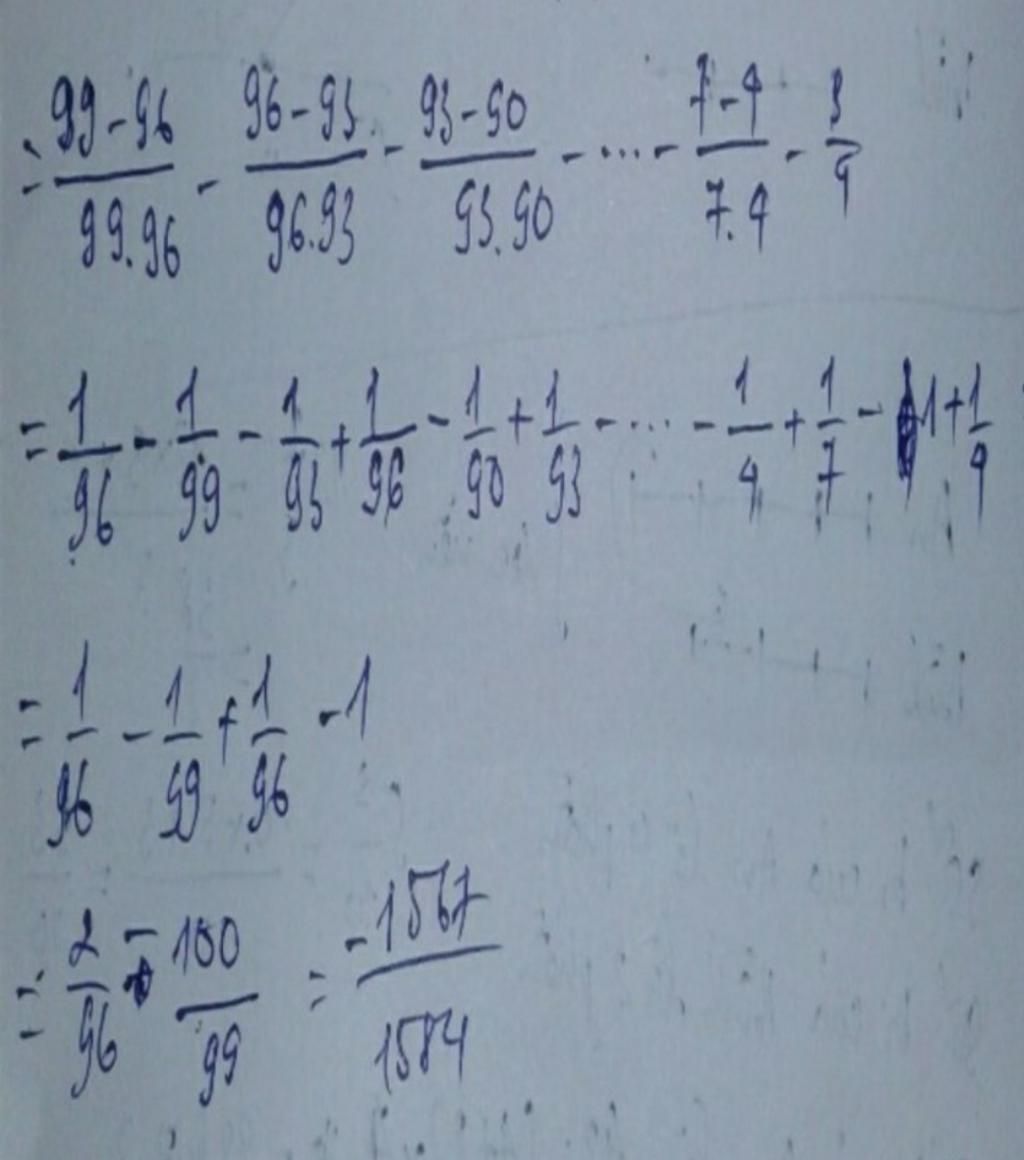 = 99-96/99.96 - 96-93/96.93 - 93-90/93.90 - ... - 7-4/7.4 - 3/4
= 1/96 - 1/99 - 1/93 + 1/96 - 1/90 + 1/93 - ... - 1/4 + 1/7 - 1 + 1/4
= 1/96 - 1/99 + 1/96 - 1
= 2/96 - 100/99 = -1567/1584